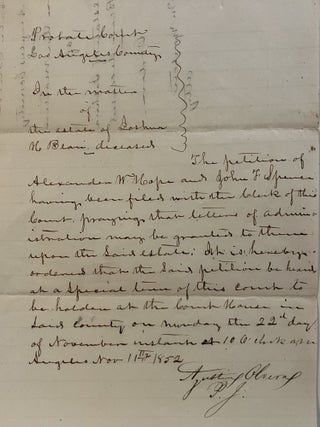 Probate Court
Los Angeles County
In the matter
of
the estate of Joshua
H Bean, deceased
The petition of
Alexander W Hope and John F Spence
having been filed with the clerk of this
Court praying that letters of admin-
istration may be granted to them
upon the said estate: It is hereby
ordered that the said petition be heard
at a Special term of this court to
be holden at the Court House in
Said County on Monday the 22d day
of November instant at 10 O clock
Angeles Nov 11th 1852
Agustin Olvera
P. J.